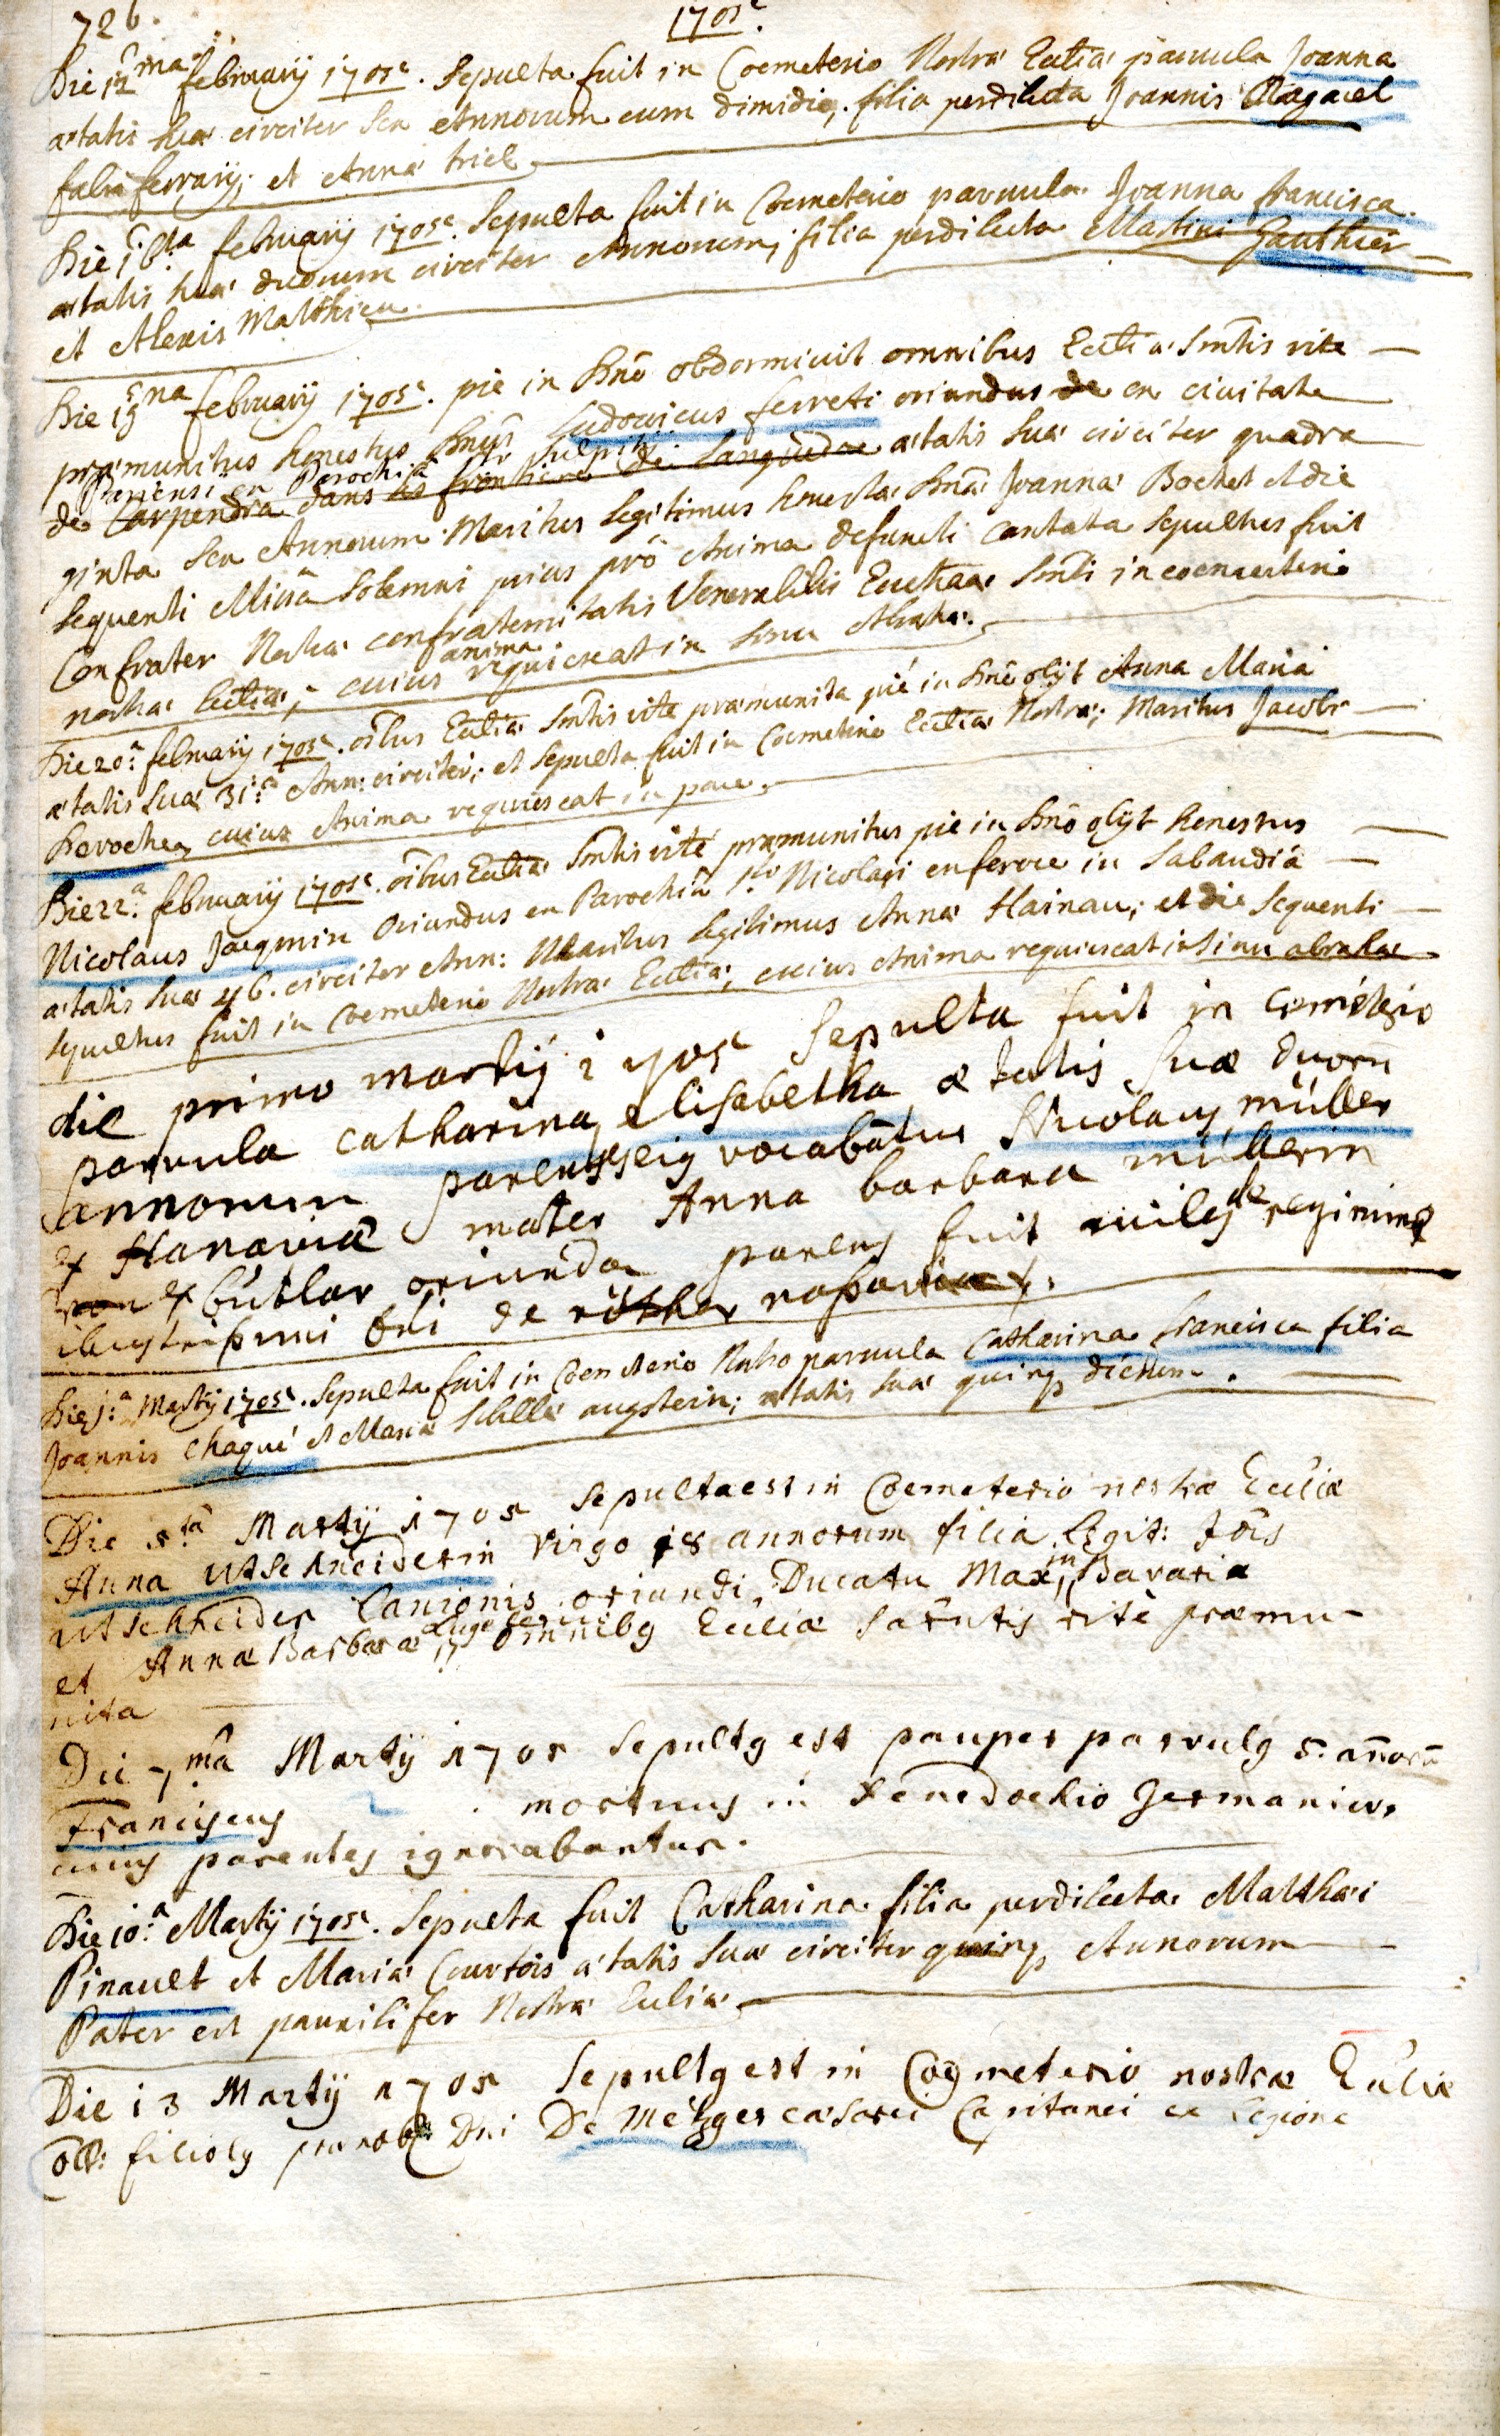 726.
1705.
Die 12ma february 1705. Sepulta fuit in Coemeterio Nostræ Eccliæ paruula Joanna
ætatis suæ circiter sex Annorum cum dimidio, filia perdilecta Joannis Ragauel
fabri ferrarij; et Annæ triel
Die 16ta february 1705. Sepulta fuit in Coemeterio paruula Joanna francisca
ætatis suæ duorum circiter Annorum; filia perdilecta Martini Gauthier
et Alexis Matthieu.
Die 19na february 1705. pie in Dnō obdormiuit omnibus Eccliæ Smtis rite
præmunitus honestus Dnus Ludovicus ferreti oriundus de ex ciuitate
Parisiensi ex Parochiâ Sulpitij
de Carpendra dans les frontieres de Languedoc ætatis suæ circiter quadra
ginta sex Annorum Maritus legitimus honestæ Dnæ Joannæ Bochet et die
sequenti Missâ solemni prius prō Anima defuncti cantata sepultus fuit
Confrater Nostræ confraternitatis Venerabilis Euchae Smti in coemeterio
nostræ Eccliæ; cuius anima requiescat in sinu Abrahæ.
Die 20a february 1705. oibus Eccliæ Smtis rite præmunita pié in Dnō obijt Anna Maria
ætatis suæ 31a Ann: circiter; et sepulta fuit in Coemeterio Eccliæ Nostræ; Maritus Jacobi
Deroche, cuius Anima requiescat in pace.
Die 22a february 1705. oibus Eccliæ Smtis rite præmunitus pie in Dnō obijt honestus
Nicolaus Jacquin Oriundus ex Parochiâ sti Nicolai enferoce in Sabaudiâ
ætatis suæ 46. circiter Ann: Maritus legitimus Annæ Hainau; et die sequenti
sepultus fuit in Coemeterio Nostræ Eccliæ; cuius Anima requiescat in sinu abrahæ
die primo martij 1705 sepulta fuit in cemeterio
parvula catharina elisabetha ætatis suæ duorū
annorum parens eig vocabatur Nicolaus müller
ex Hanavia mater Anna barbara müllerin
ex butlar oriunda parens fuit miles de regimine
illustrissimi Dni de
Die 1a Martij 1705. sepulta fuit in Coemeterio Nostro paruula Catharina francisca filia
Joannis Chaqué et Mariæ Sibillæ augstein; ætatis suæ quinq dierum.
Die 5tâ Martij 1705 sepulta est in Coemeterio nostræ Eccliæ
Anna Utschneiderin virgo 18 annorum filia legit: Jōis
Utschneider Lanionis oriundi Ducatu Max: in Bavariæ
et Annæ Barbaræ omnibg Eccliæ Sacmtis ritè præmu-
nita
Die 7mâ Martij 1705 sepultg est pauper parvulg 5. annorū
Francisceus mortuus in Xenedochio Germanico,
cuius parentes ignorabantur.
Die 10a Martij 1705. Sepulta fuit Catharina filia perdilecta Matthæi
Pinault et Mariæ Courtois ætatis suæ circiter quinq Annorum
Pater est pauxilifer Nostræ Eccliæ.
Die 13 Martij 1705 sepultg est in Coemeterio nostræ Eccliæ
filiolg prænob: Dni De Metzger cæsarei Capitanei ex legione